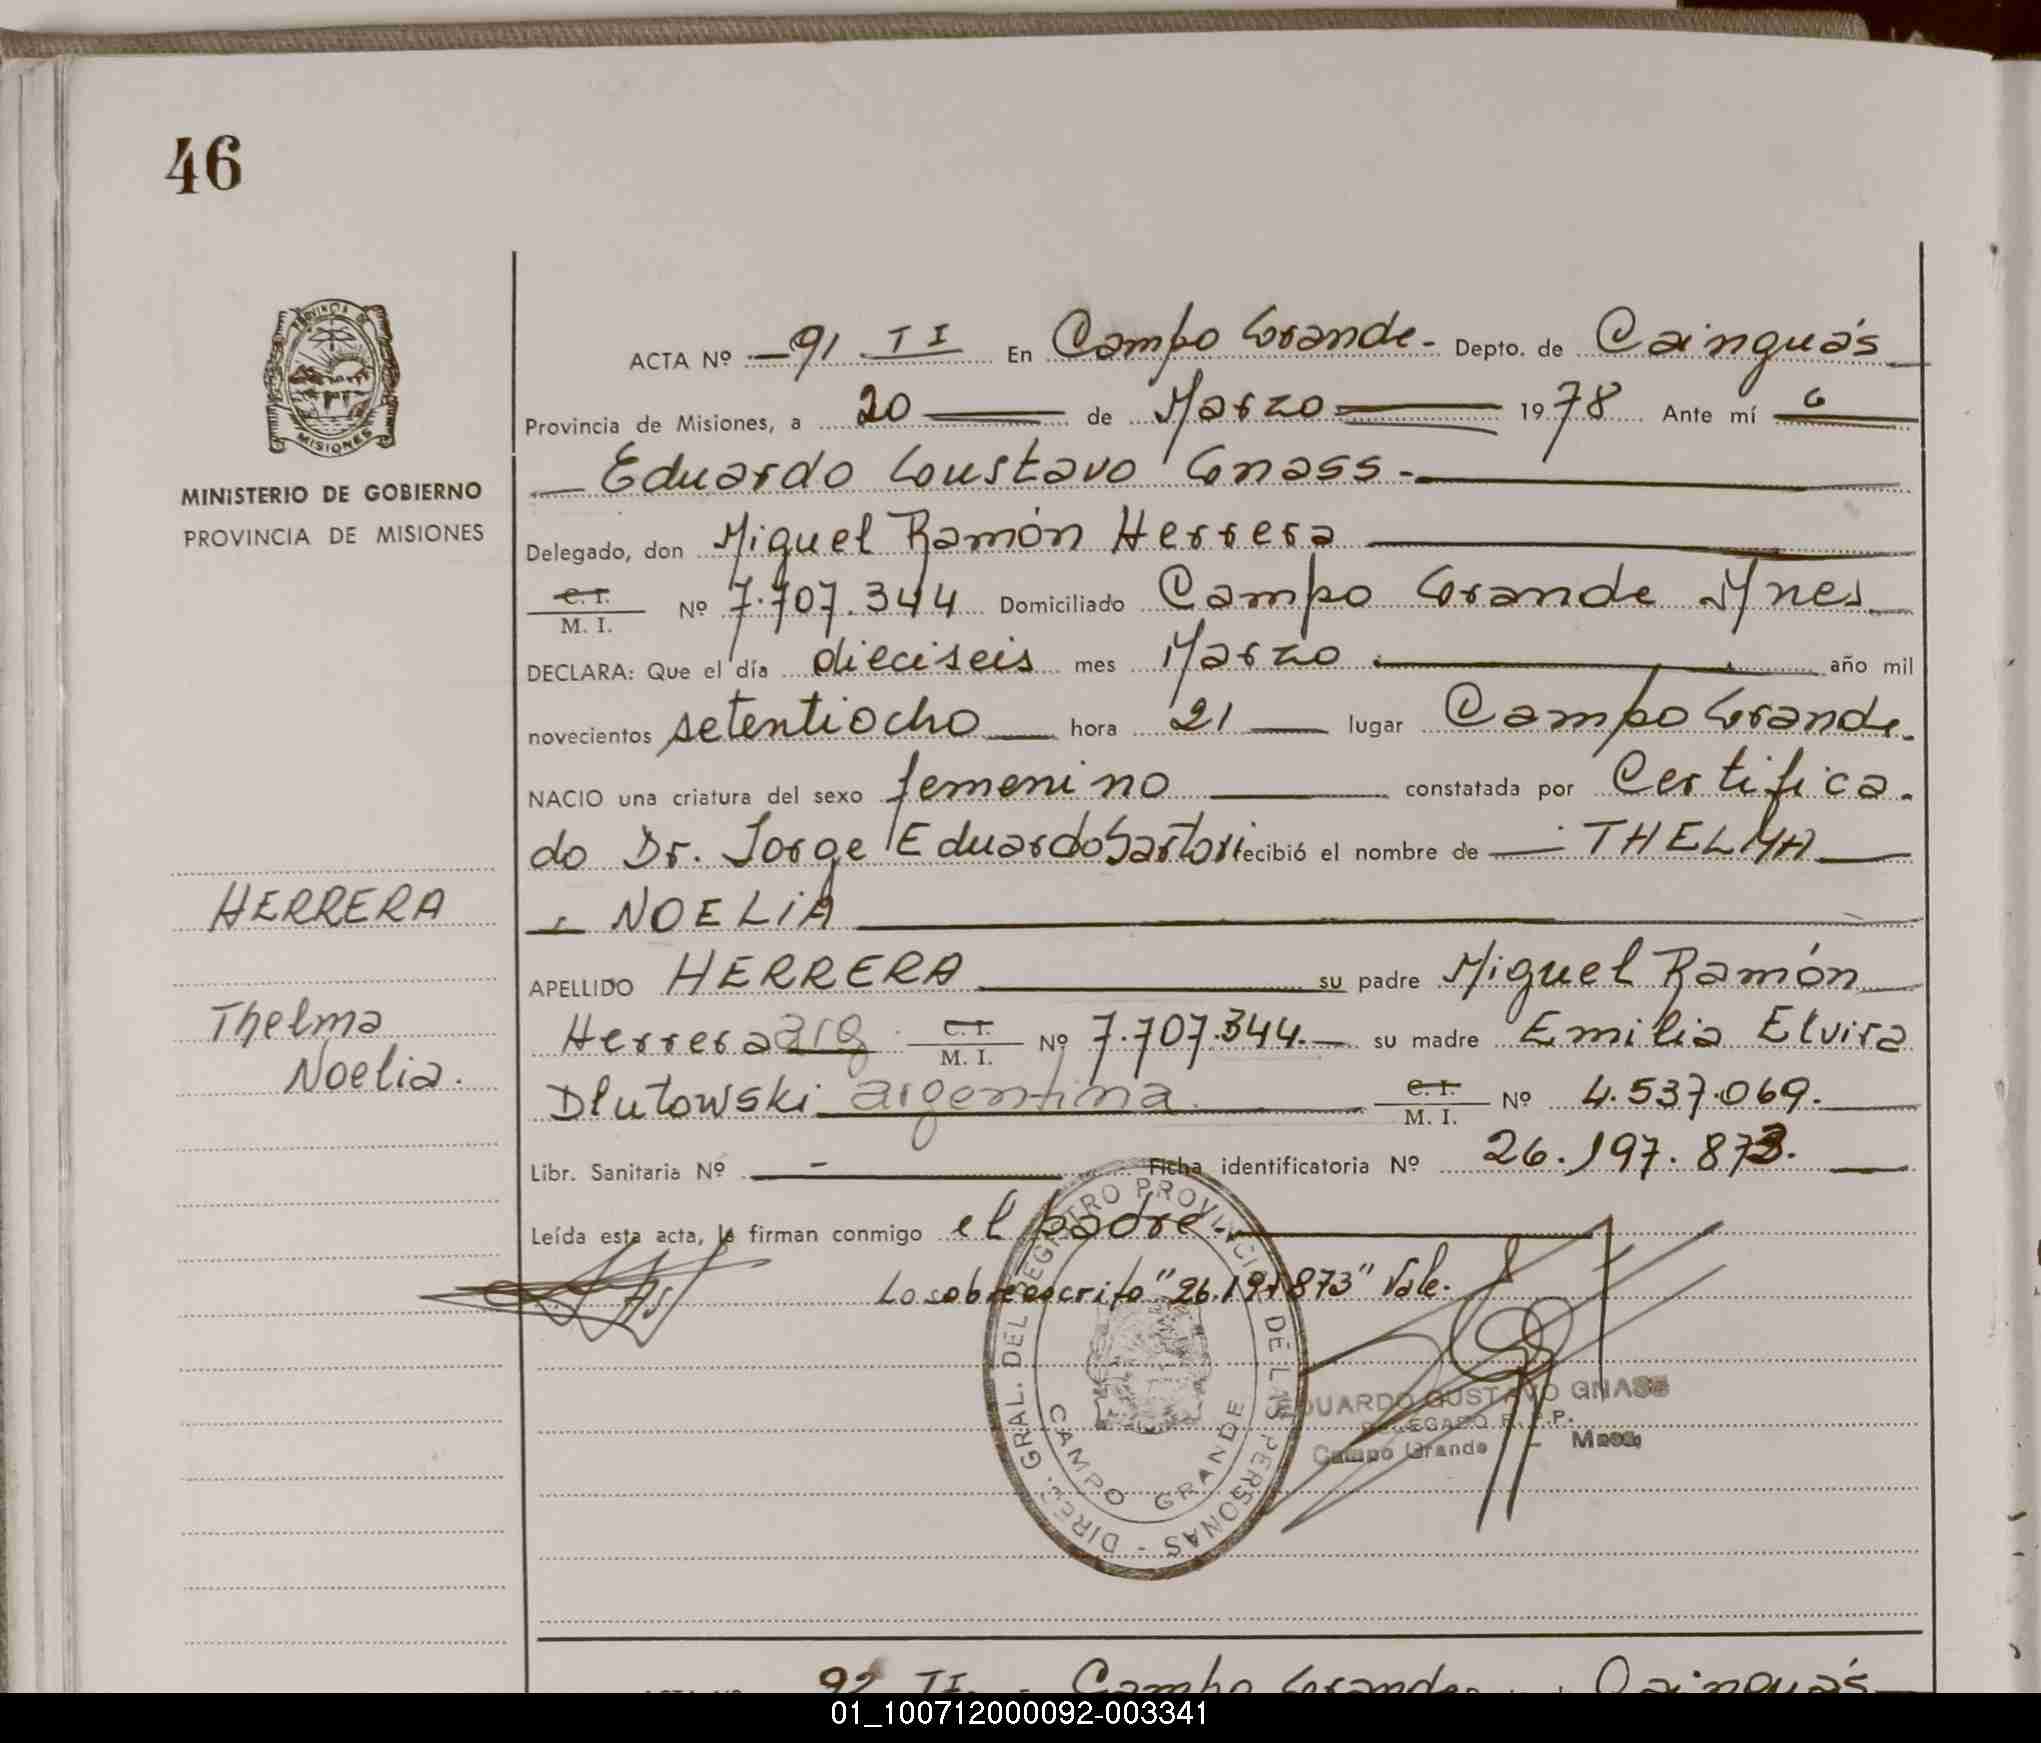 46
PROVINCIA DE
MISIONES
MINISTERIO DE GOBIERNO
PROVINCIA DE MISIONES
ACTA Nº 91 II En Campo Grande - Depto. de Cainguás
Provincia de Misiones, a 20 de Marzo 1978 Ante mí
Eduardo Gustavo Gnass -
Delegado, don Miguel Ramón Herrera
C. I.
M. I. Nº 7.707.344 Domiciliado Campo Grande Mnes
DECLARA: Que el día dieciseis mes Marzo año mil
novecientos setentiocho hora 21 lugar Campo Grande.
NACIO una criatura del sexo femenino constatada por Certifica-
do Dr. Jorge Eduardo Sartori recibió el nombre de THELMA
NOELIA
HERRERA
APELLIDO HERRERA su padre Miguel Ramón
Thelma
Noelia.
Herrera arg C. I.
M. I. Nº 7.707.344.- su madre Emilia Elvira
Dlutowski argentina. C. I.
M. I. Nº 4.537.069.
Libr. Sanitaria Nº - Ficha identificatoria Nº 26.197.873.
Leída esta acta, la firman conmigo el padre.
Lo sobreescrito "26.197.873" Vale.
DIREC. GRAL. DEL REGISTRO PROVINCIAL DE LAS PERSONAS -
CAMPO GRANDE
EDUARDO GUSTAVO GNASS
DELEGADO R. P. P.
Campo Grande - Mnes.
ACTA Nº 92 II. - Campo Grande Cainguás
01_100712000092-003341